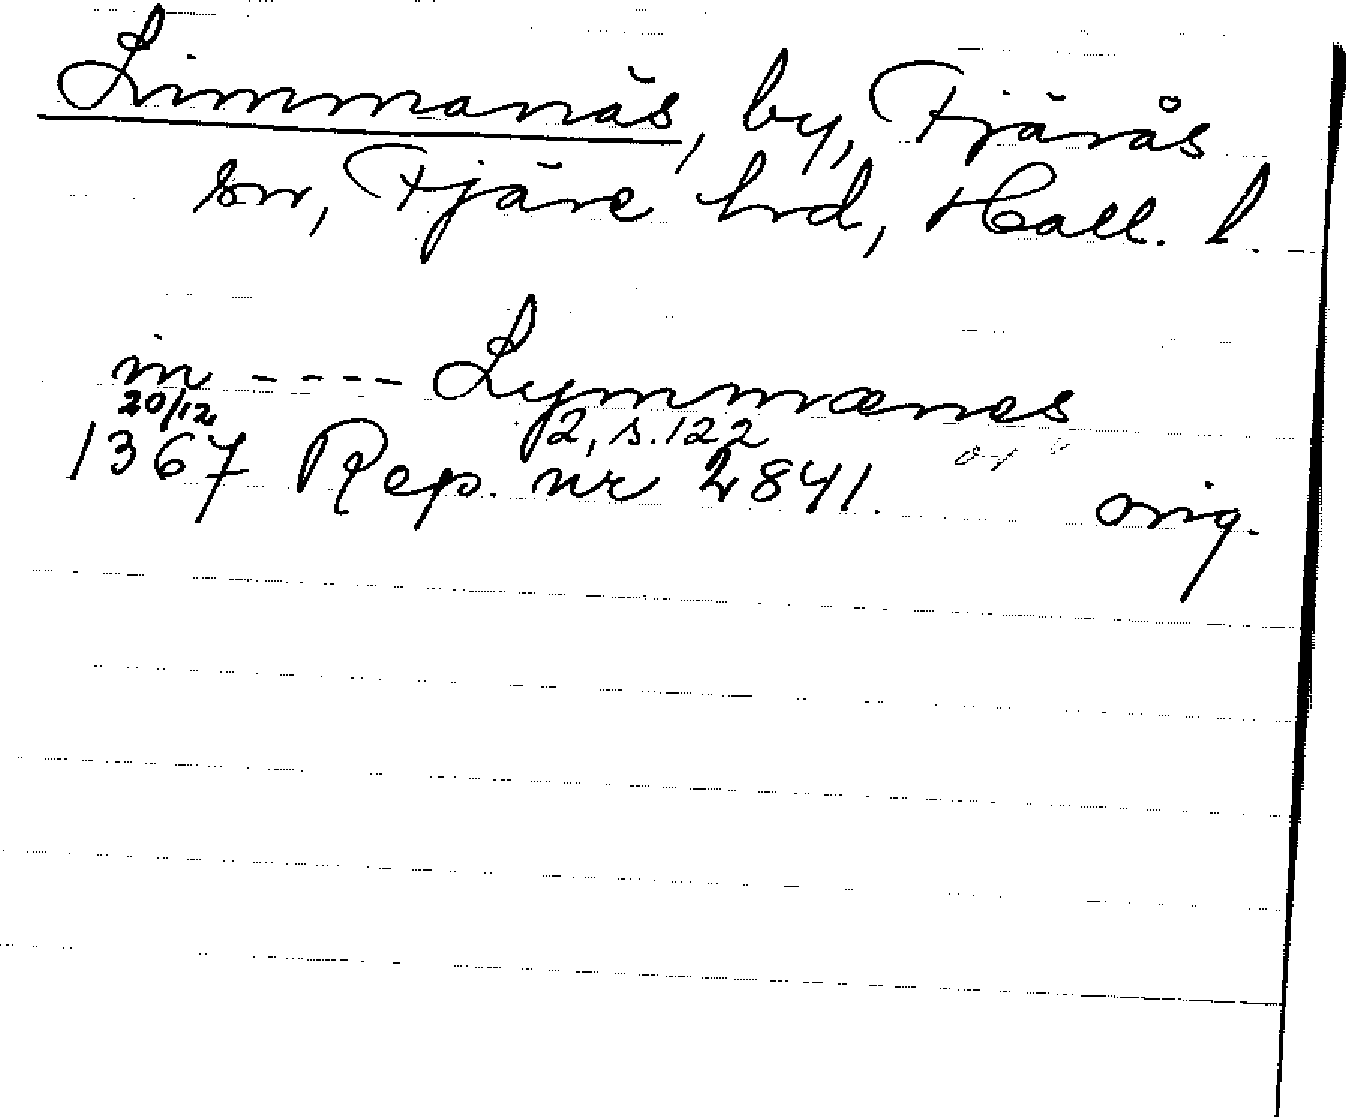 Limmanäs, by, Fjärås
sn, Fjäre hd, Hall. l.
in ---- Lymmænes
20/12 2, s. 122
1367 Rep. nr 2841. orig.